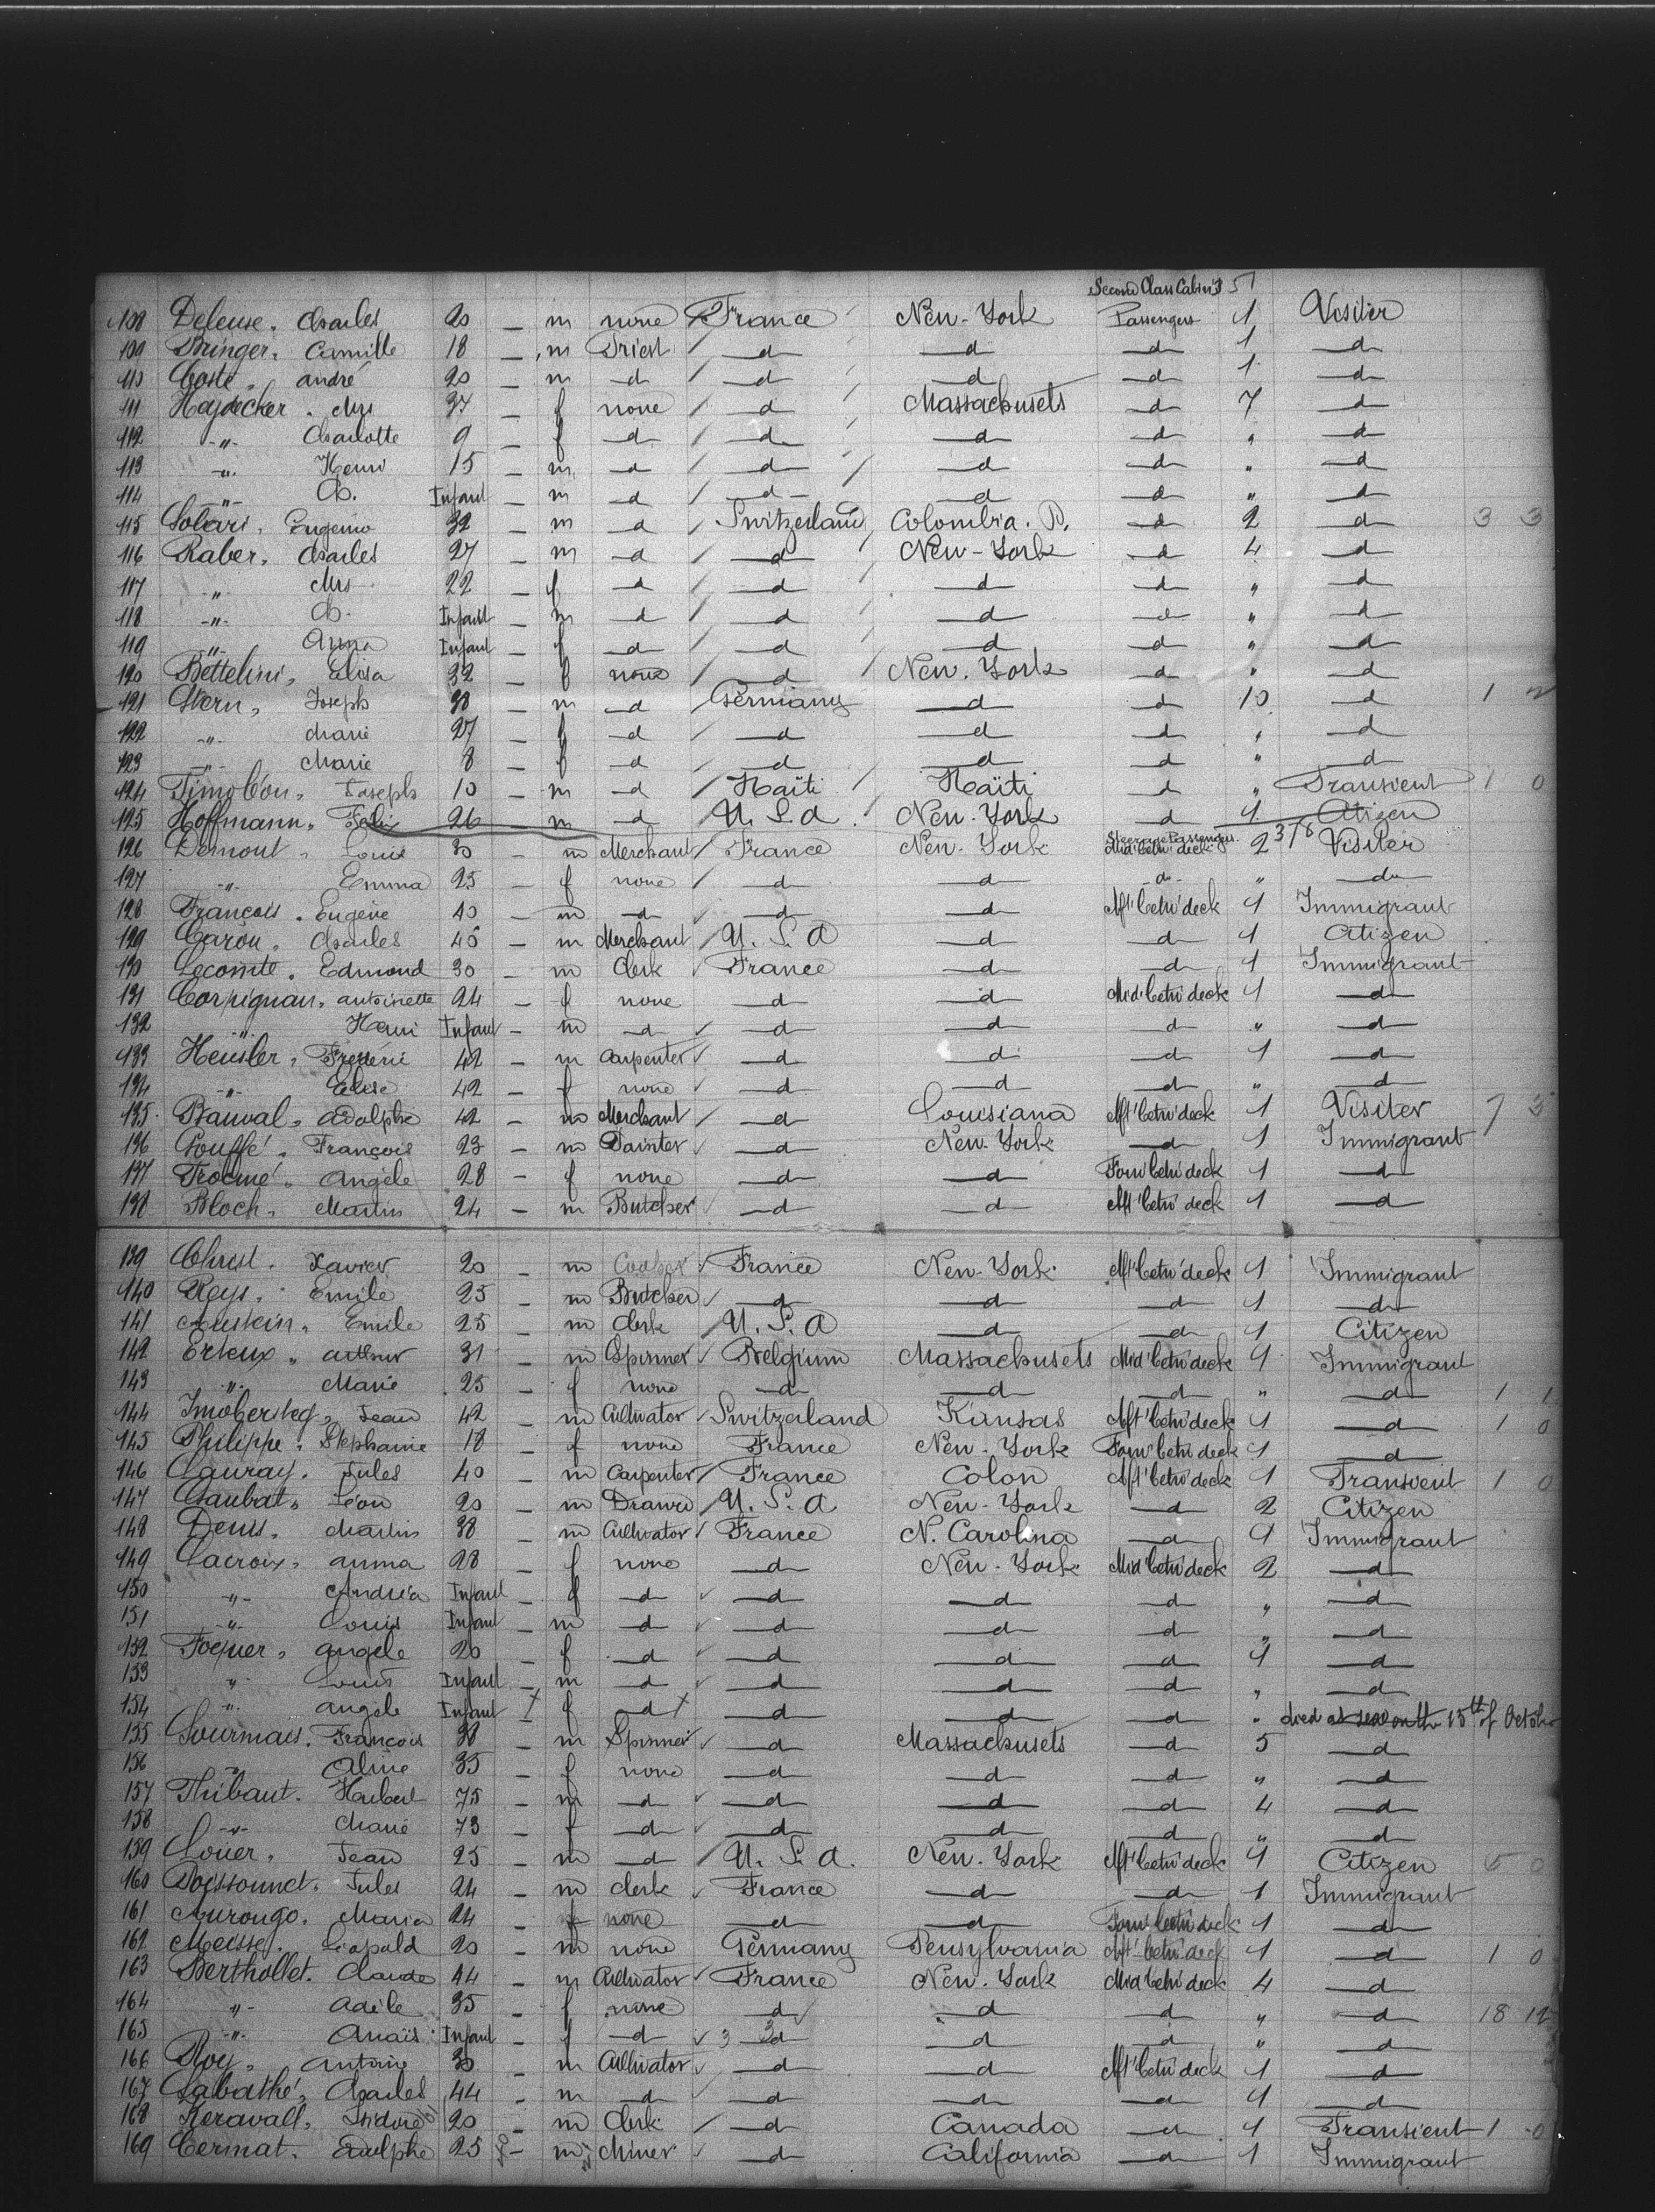 Second Class Cabin's 51
108 Deleuse. Charles 20 - m none France New-York Passengers 1 Visiter
109 Bringer. Camille 18 - m Priest d d d 1 d
110 Coste. André 20 - m d d d d 1 d
111 Hajdecker. Mrs 37 - f none d Massachusets d 7 d
112 -"- Charlotte 9 - f d d d d " d
113 -"- Henri 15 - m d d d d " d
114 -"- Ch. Infant - m d d d d " d
115 Solari. Eugenio 32 - m d Switzerland Colombia. R. d 2 d 3 3
116 Raber. Charles 27 - m d d New-York d 4 d
117 -"- Mrs 22 - f d d d d " d
118 -"- Ch. Infant - m d d d d " d
119 -"- Anna Infant - f d d d d " d
120 Bettelini. Elisa 32 - f none d New. York d " d
121 Stern. Joseph 38 - m d Germany d d 10 d 1 2
122 -"- Marie 27 - f d d d d " d
123 -"- Marie 8 - f d d d d " d
124 Timoléon. Joseph 10 - m d Haïti Haïti d " Transient 1 0
125 Hoffmann. Felix 26 m d U. S. A. New-York d 1 Citizen
126 Demont. Louis 30 - m Merchant France New-York Steerage Passengers Mid' betw' deck 2 318 Visiter
127 -"- Emma 25 - f none d d do " do
128 François. Eugène 40 - m d d d Aft' betw' deck 1 Immigrant
129 Caron. Charles 45 - m Merchant U. S. A d d 1 Citizen
130 Lecomte. Edmond 30 - m Clerk France d d 1 Immigrant
131 Corpignan. Antoinette 24 - f none d d Mid' betw' deck 1 d
132 -"- Henri Infant - m d d d d " d
133 Heusler. Frédéric 42 - m Carpenter d d d 1 d
134 -"- Elise 42 - f none d d d " d
135 Bauval. Adolphe 42 - m Merchant d Louisiana Aft' betw' deck 1 Visiter 7 5
136 Gouffé. François 23 - m Painter d New-York d 1 Immigrant
137 Trocmé. Angèle 28 - f none d d Forw' betw' deck 1 d
138 Bloch. Martin 24 - m Butcher d d Aft' betw' deck 1 d
139 Christ. Xavier 20 - m France New-York Aft' betw' deck 1 Immigrant
140 Reys. Emile 25 - m Butcher d d d 1 d
141 Austein. Emile 25 - m Clerk U. S. A d d 1 Citizen
142 Erteux. Arthur 31 - m Spinner Belgium Massachusets Mid' betw' deck 1 Immigrant
143 -"- Marie 25 - f none d d d " d 1 1
144 Imobersteg. Jean 42 - m Cultivator Switzerland Kansas Aft' betw' deck 1 d 1 0
145 Philippe. Stephanie 18 - f none France New-York Forw' betw' deck 1 d
146 Lauray. Jules 40 - m Carpenter France Colon Aft' betw' deck 1 Transient 1 0
147 Gaubat. Léon 20 - m U. S. A New-York d 2 Citizen
148 Denis. Martin 38 - m Cultivator France N. Carolina d 1 Immigrant
149 Lacroix. Anna 28 - f none d New-York Mid' betw' deck 2 d
150 -"- Andréa Infant - f d d d d " d
151 -"- Louis Infant - m d d d d " d
152 Angèle 20 - f d d d d 1 d
153 " Louis Infant - m d d d d " d
154 -"- Angèle Infant f d d d d " died at sea on the 15th of October
155 Sourmais. François 38 - m Spinner d Massachusets d 5 d
156 -"- Aline 35 - f none d d d " d
157 Thibaut. Hubert 75 - m d d d d 4 d
158 -"- Marie 73 - f d d d d " d
159 Louer. Jean 25 - m d U. S. A. New-York Aft' betw' deck 1 Citizen 5 0
160 Poissonnet. Jules 24 - m Clerk France d d 1 Immigrant
161 Aurougo. Maria 24 - f none d d Forw' betw' deck 1 d
162 Meisse. Léopold 20 - m none Germany Pensylvania Aft' betw' deck 1 d 1 0
163 Berthollet. Claude 44 - m Cultivator France New-York Mid betw' deck 4 d
164 -"- Adèle 35 - f none d d d " d 18 12
165 -"- Anaïs Infant - f d 3 3 d d d " d
166 Roy. Antoine 30 - m Cultivator d d Aft' betw' deck 1 d
167 Labathé. Charles 44 - m d d d d 1 d
168 Keravall. Isidore 20 - m Clerk d Canada d 1 Transient 1 0
169 Cermat. Adolphe 25 - m Miner d California d 1 Immigrant